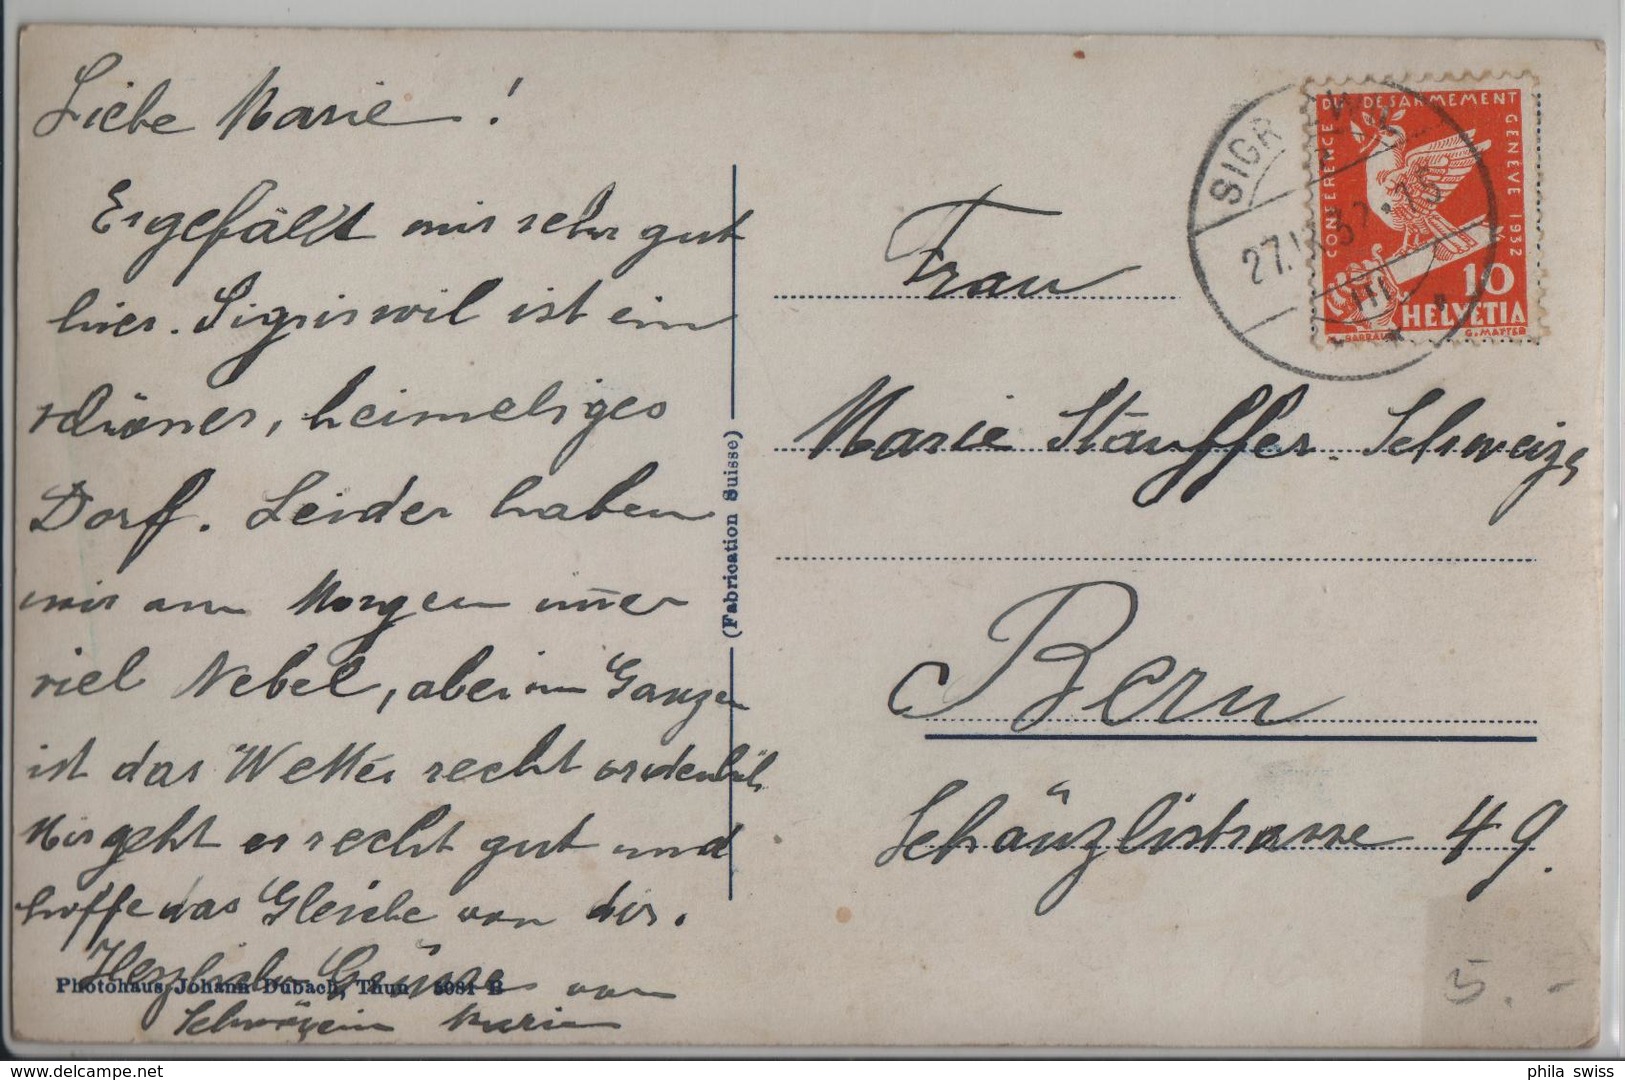 Liebe Marie!
Es gefällt mir sehr gut
hier. Sigriswil ist ein
schönes, heimeliges
Dorf. Leider haben
wir am Morgen im̅er
viel Nebel, aber im Ganzen
ist das Wetter recht ordentlich
Mir geht es recht gut und
hoffe das Gleiche von dir.
Herzliche Grüsse von
Schwägerin
Photohaus Johann Dubach, Thun 5081 B
(Fabrication Suisse)
SIGRISWIL
27. 32.-15
CONFERENCE DU DESARMEMENT GENEVE 1932
10
HELVETIA
M. BARRAUD G. MATTER
Frau
Marie Stauffer-Schweizer
Bern
Schänzlistrasse 49.
5.-
phila swiss